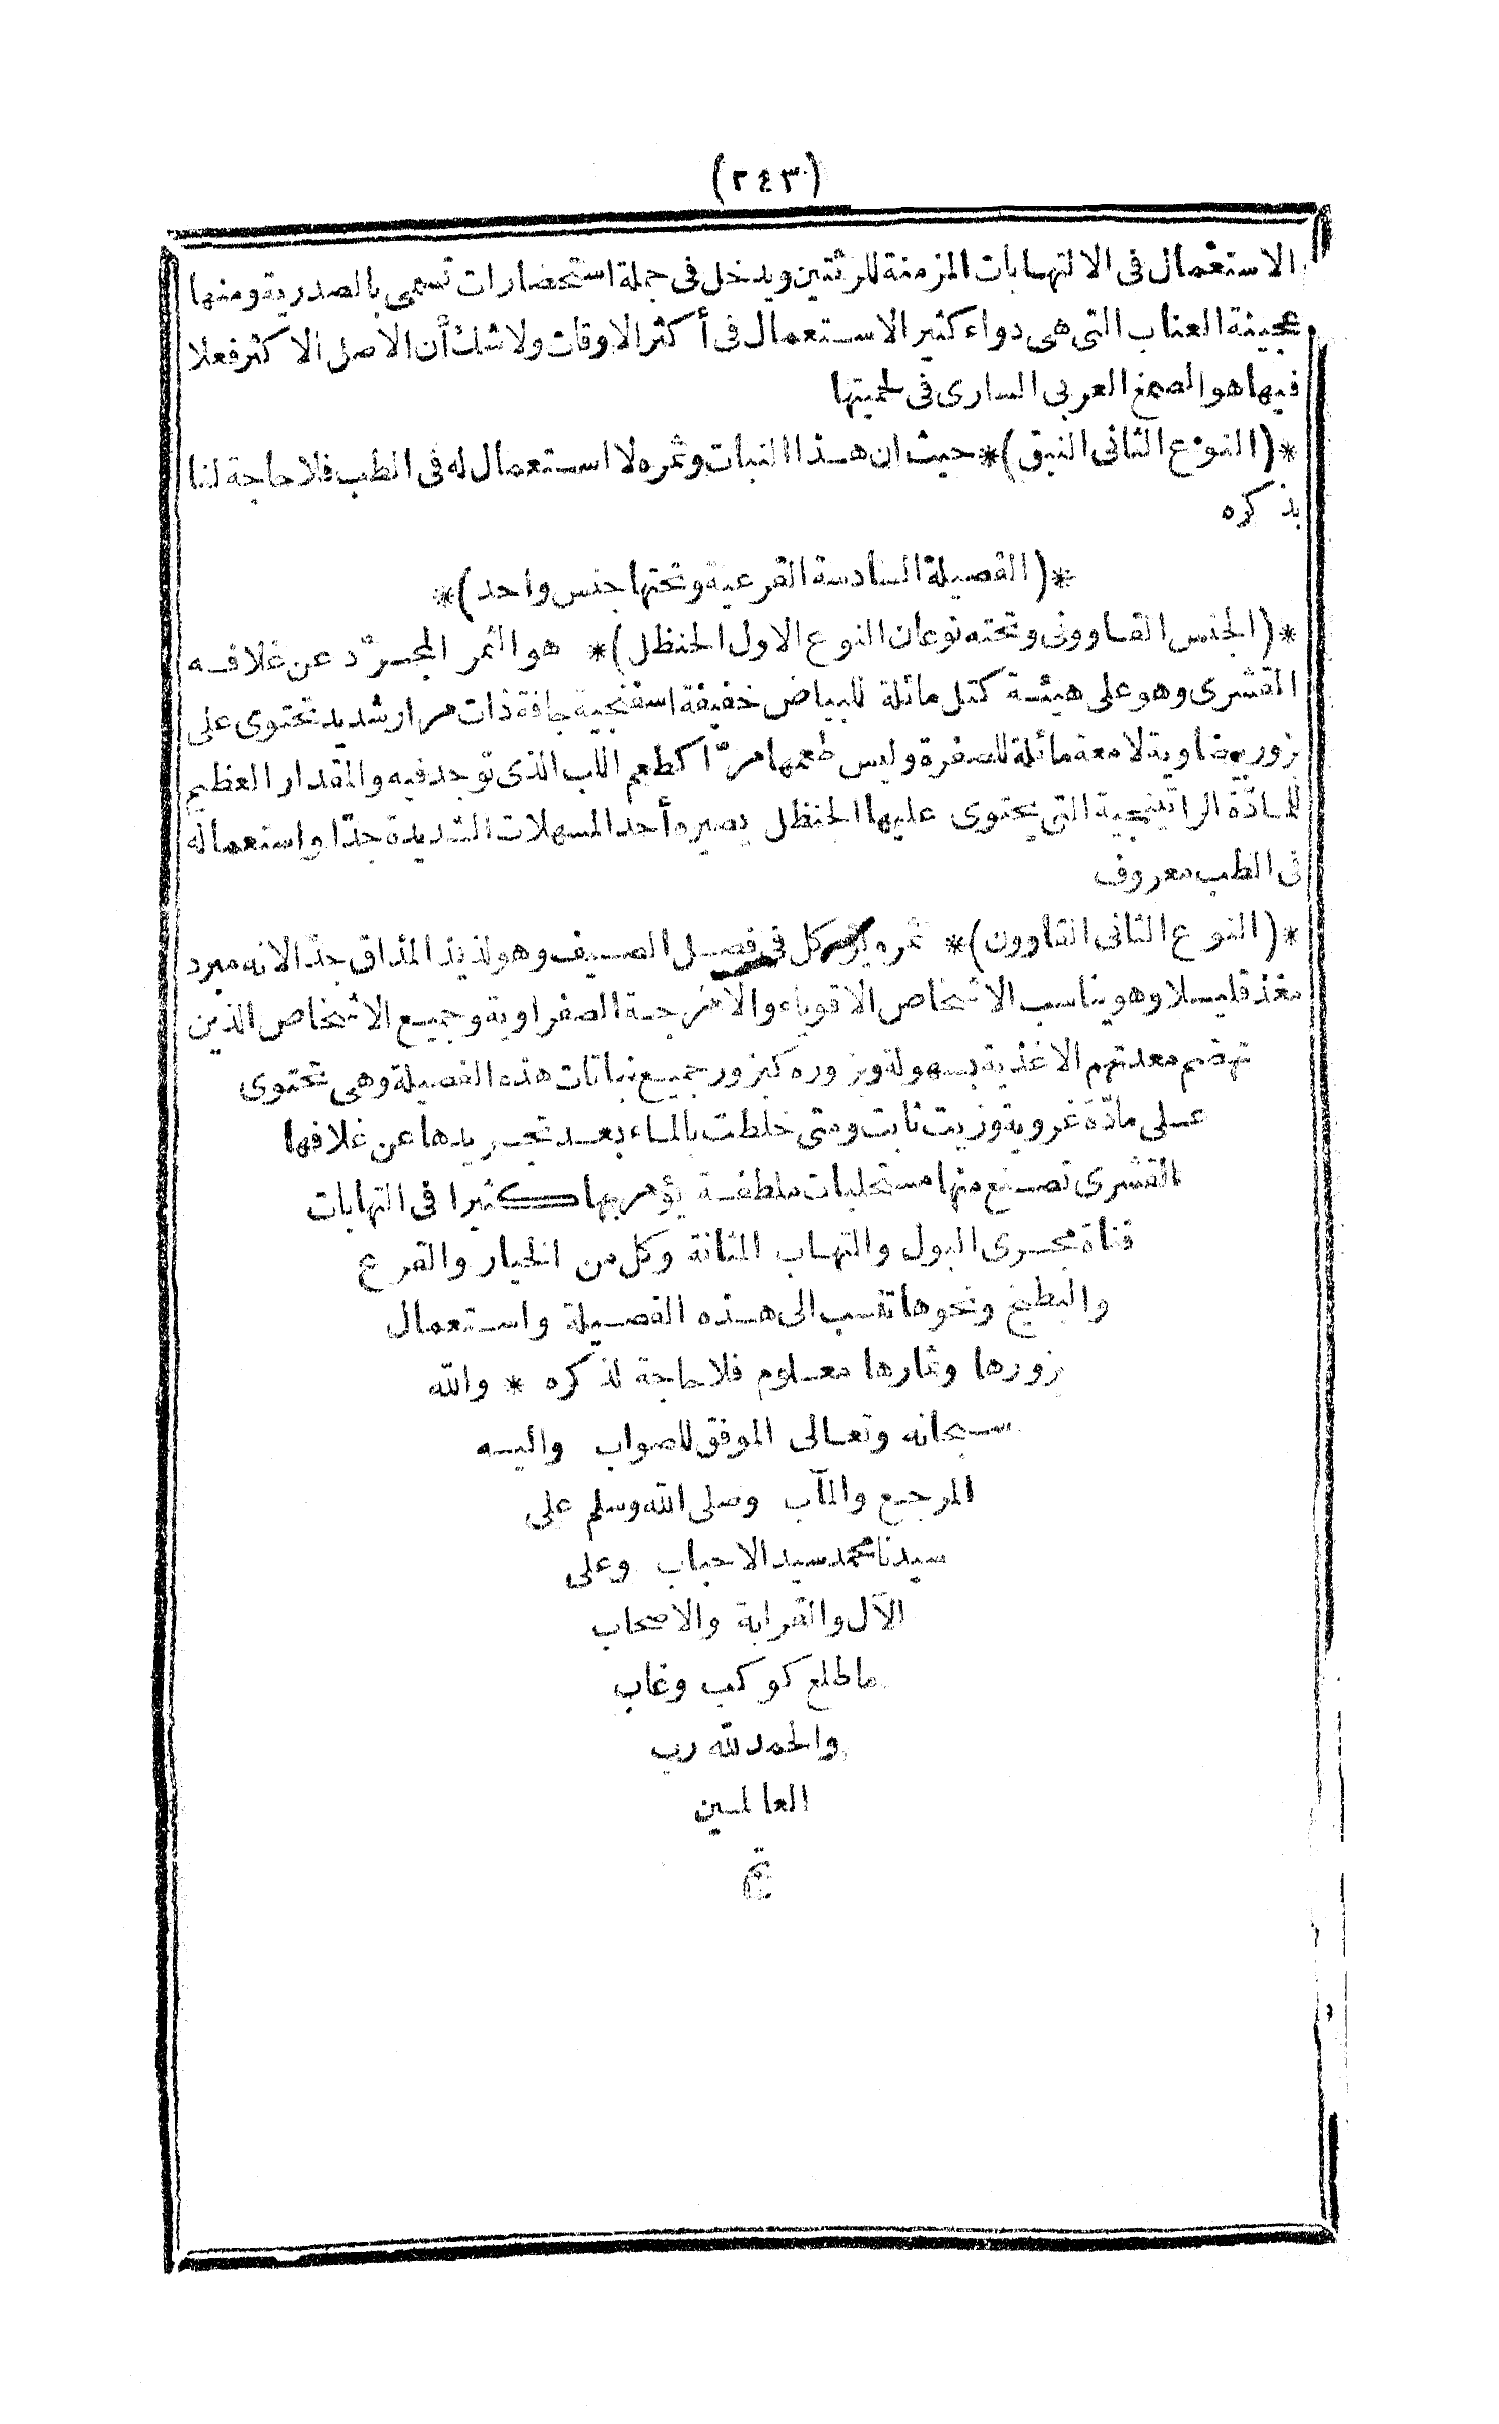 (٢٤٣)
الاستعمال فى الالتهابات المزمنة للرئتين ويدخل فى جملة استحضارات تسمى بالصدرية ومنها
عجينة العناب التى هى دواء كثير الاستعمال فى أكثر الاوقات ولا شك أن الاصل الاكثر فعلا
فيها هو الصمغ العربى السارى فى لحميتها
*(النوع الثانى النبق)* حيث ان هذا النبات وثمره لا استعمال له فى الطب فلا حاجة لنا
بذكره
*(الفصيلة السادسة القرعية وتحتها جنس واحد)*
*(الجنس القاوونى وتحته نوعان النوع الاول الحنظل)* هو الثمر المجرّد عن غلافه
القشرى وهو على هيئة كتل مائلة للبياض خفيفة اسفنجية جافة ذات مرار شديد تحتوى على
بزور بيضاوية لامعة مائلة للصفرة وليس طعمها مرّا كطعم اللب الذى توجد فيه والمقدار العظيم
للمادّة الراتينجية التى يحتوى عليها الحنظل يصيره أحد المسهلات الشديدة جدّا واستعماله
فى الطب معروف
*(النوع الثانى القاوون)* ثمره يؤكل فى فصل الصيف وهو لذيذ المذاق جدّا لانه مبرد
مغذ قليلا وهو يناسب الاشخاص الاقوياء والامزجة الصفراوية وجميع الاشخاص الذين
تهضم معدتهم الاغذية بسهولة وبزوره كبزور جميع نباتات هذه الفصيلة وهى تحتوى
على مادّة غروية وزيت ثابت ومتى خلطت بالماء بعد تجريدها عن غلافها
القشرى تصنع منها مستحلبات ملطفة يؤمر بها كثيرا فى التهابات
قناة مجرى البول والتهاب المثانة وكل من الخيار والقرع
والبطيخ ونحوها تنسب الى هذه الفصيلة واستعمال
بزورها وثمارها معلوم فلا حاجة لذكره * والله
سبحانه وتعالى الموفق للصواب واليه
المرجع والمآب وصلى الله وسلم على
سيدنا محمد سيد الاحباب وعلى
الآل والقرابة والاصحاب
ما طلع كوكب وغاب
والحمد لله رب
العالمين
تم